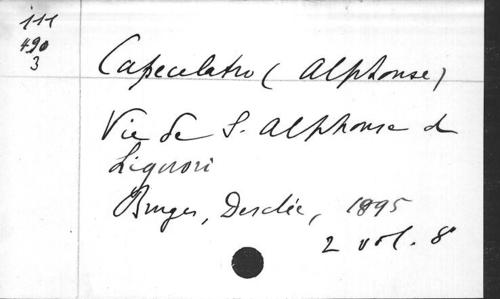 111
490
3
Capecelatro ( Alphonse )
Vie de S. Alphonse de
Liguori
Bruges, Desclée, 1895
2 vol. 8°